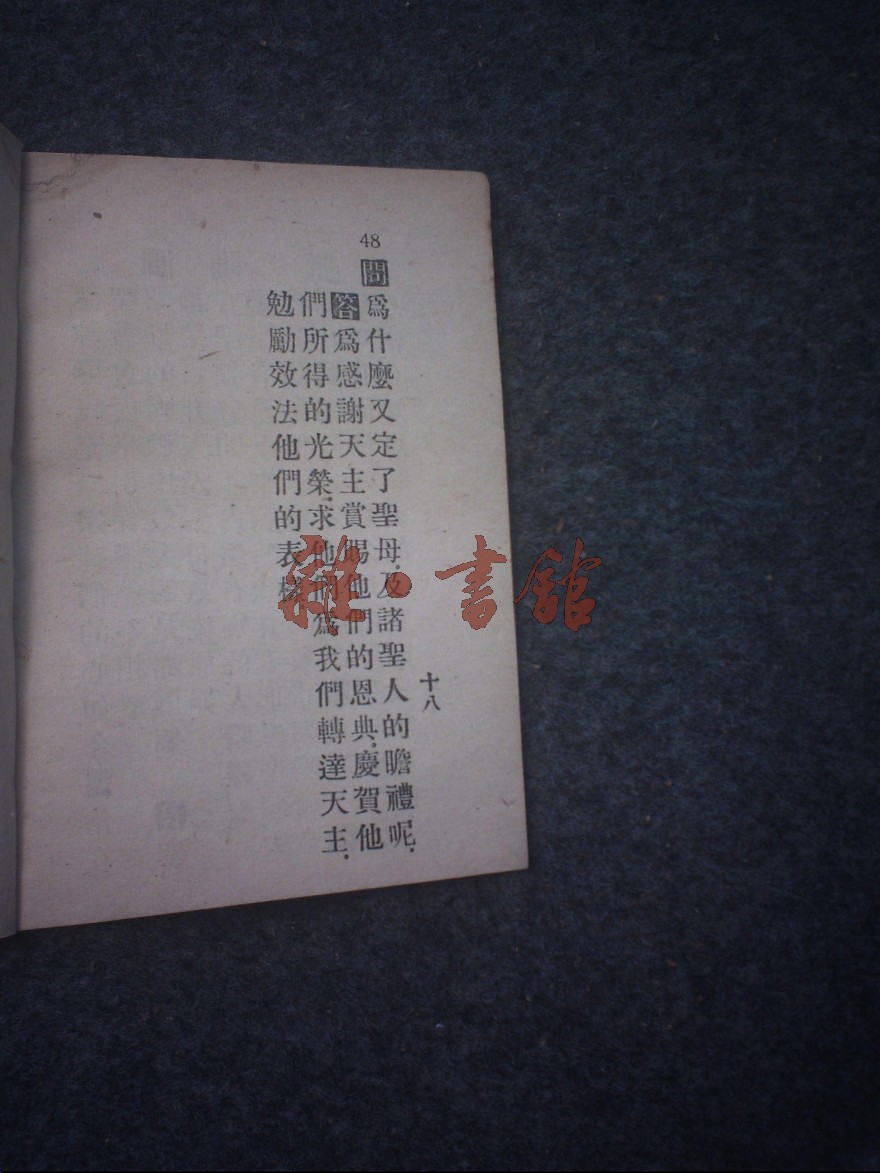 48
問爲什麼又定了聖母.及諸聖人的瞻禮呢.
答爲感謝天主賞賜他們的恩典.慶賀他
們所得的光榮.求他們爲我們轉達天主.
勉勵效法他們的表樣
十八
雜·書館